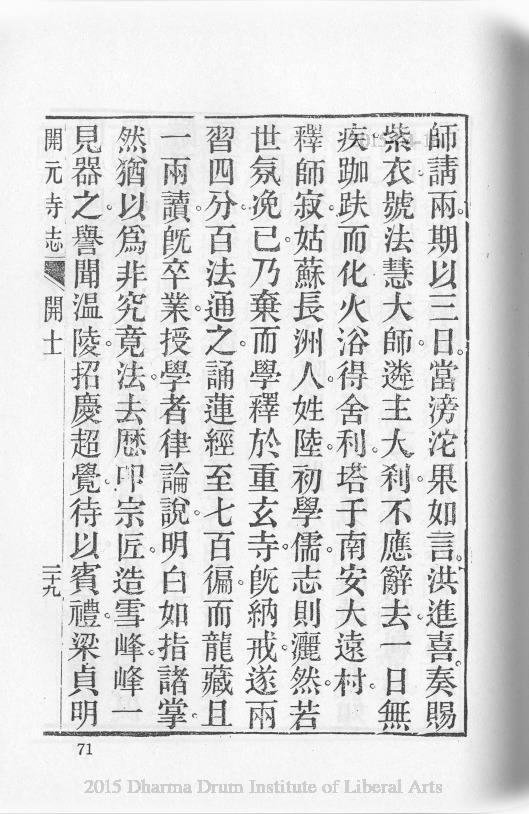 師請兩期以三日當滂沱果如言洪進喜奏賜
紫衣號法慧大師遴主大刹不應辭去一日無
疾跏趺而化火浴得舍利塔于南安大遠村
釋師寂姑蘇長洲人姓陸初學儒志則灑然若
世氛俛已乃棄而學釋於重玄寺旣納戒遂兩
習四分百法通之誦蓮經至七百徧而龍藏且
一兩讀旣卒業授學者律論說明白如指諸掌
然猶以爲非究竟法去歷叩宗匠造雪峰峰一
見器之譽聞溫陵招慶超覺待以賓禮梁貞明
開元寺志 開士 二十九
71
2015 Dharma Drum Institute of Liberal Arts